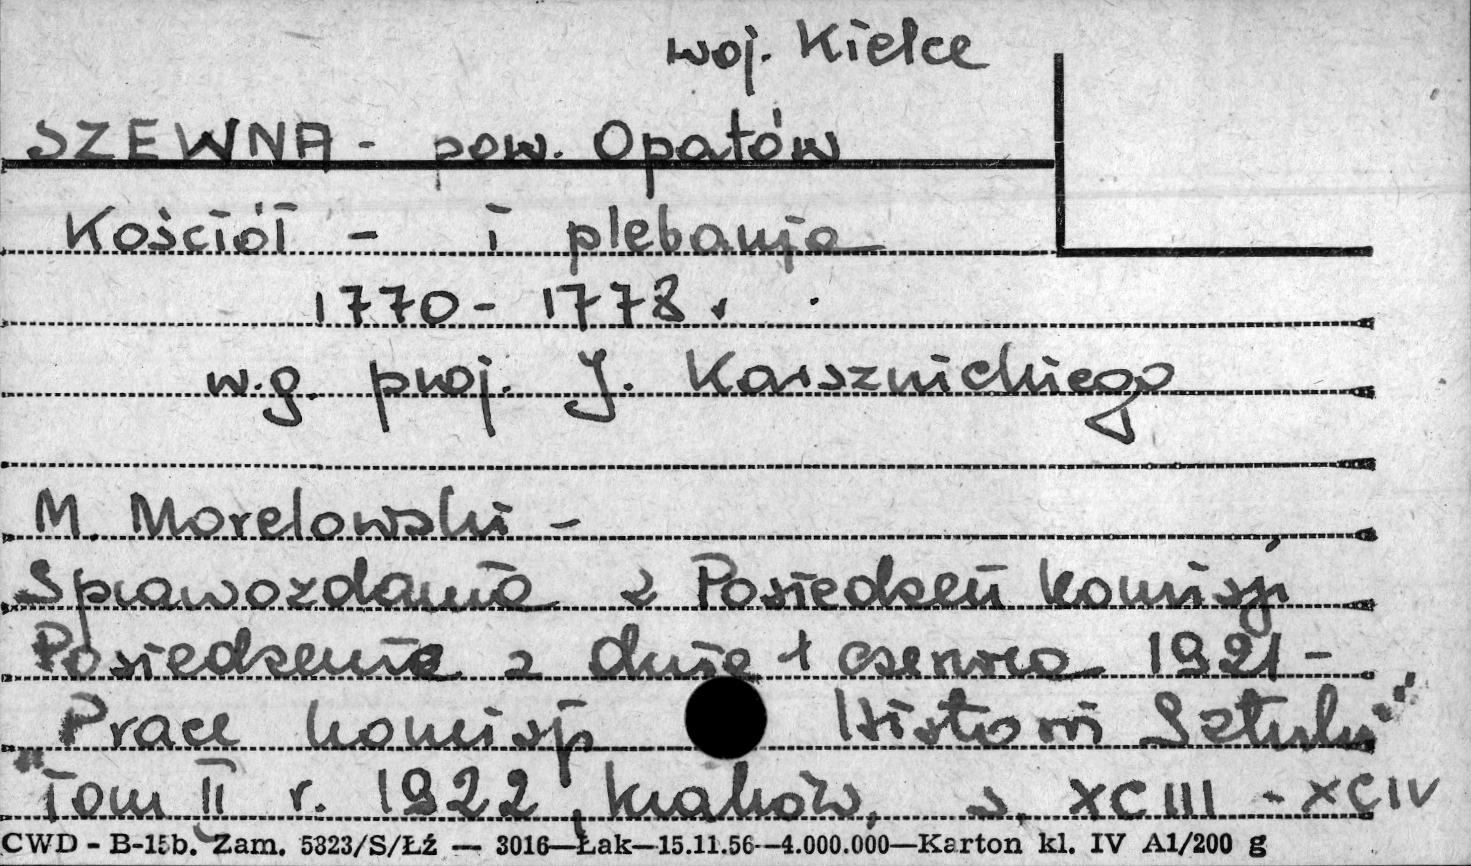 woj. Kielce
SZEWNA - pow. Opatów
Kościół - i plebania
1770 - 1778 r.
w.g. proj. J. Karsznickiego
M. Morelowski -
Sprawozdania z Posiedzeń Komisji
Posiedzenie z dnia 1 czerwca 1921 -
"Prace Komisji Historii Sztuki"
Tom II r. 1922, Kraków, s. XCIII - XCIV
CWD - B-15b. Zam. 5823/S/Łź — 3016—Łak—15.11.56—4.000.000—Karton kl. IV A1/200 g